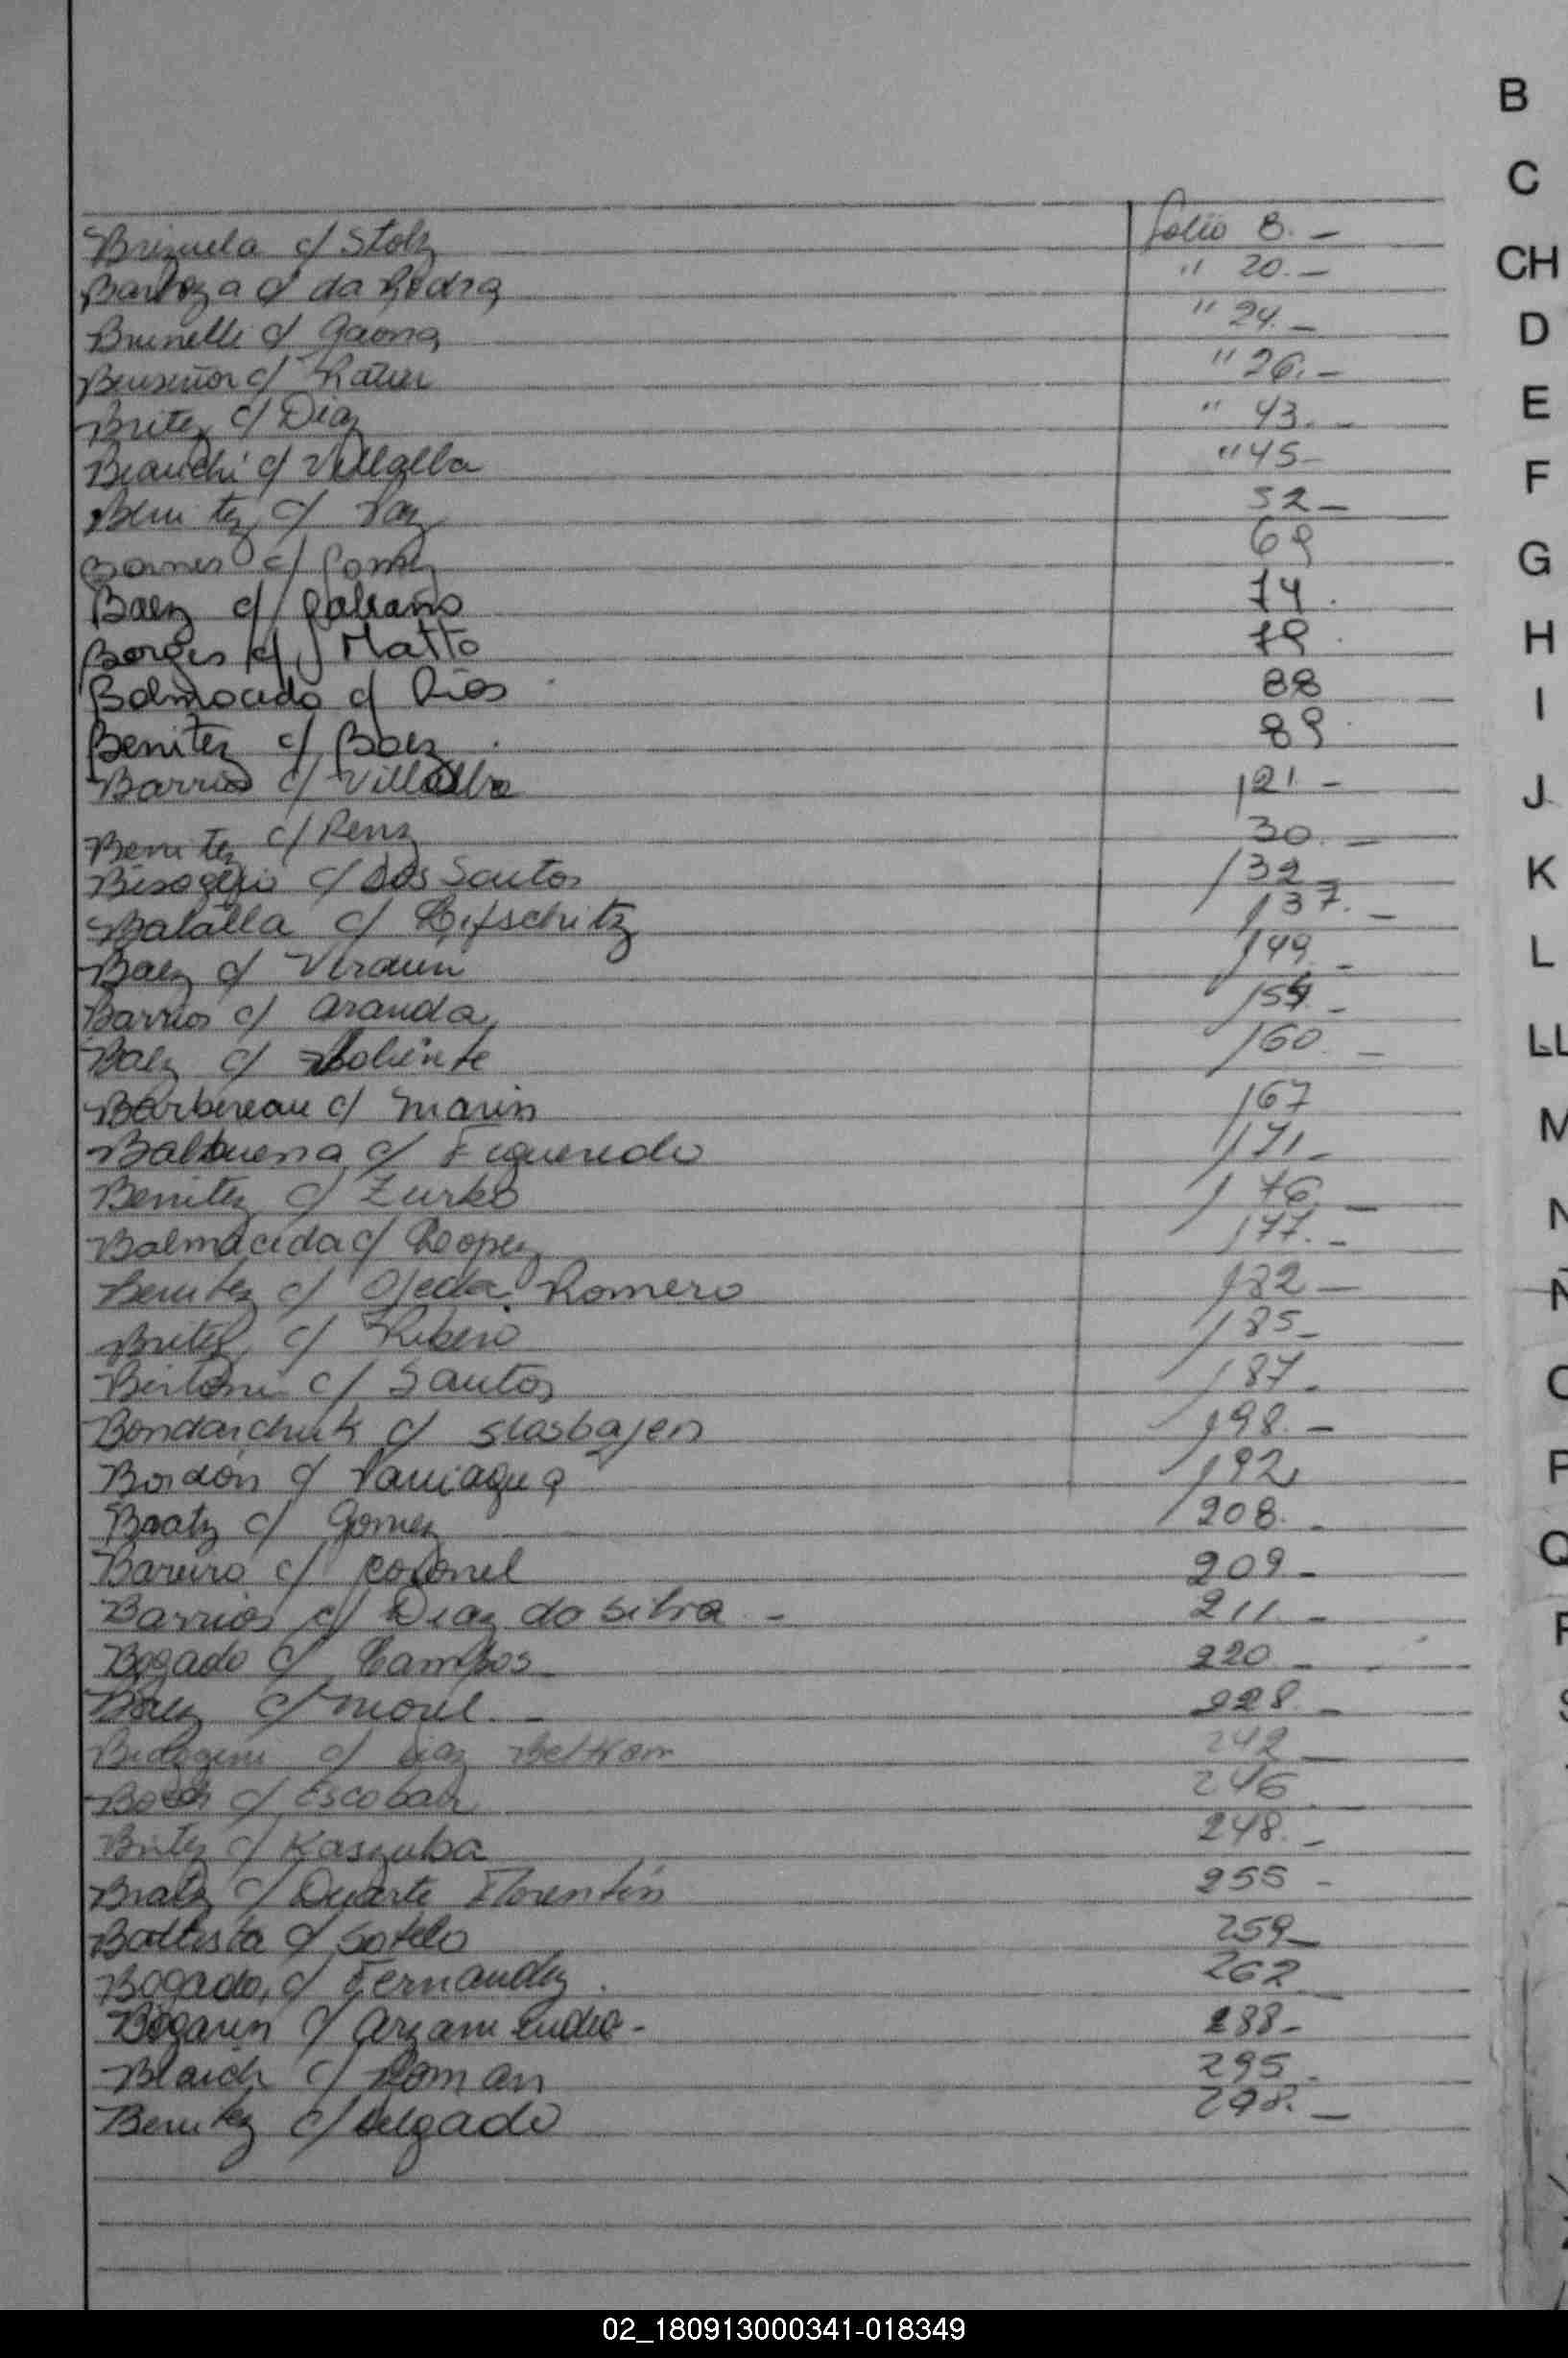 B
C
CH
D
E
F
G
H
I
J
K
L
LL
M
N
Ñ
O
P
Q
Brizuela c/ Stolz folio 8.-
Barboza c/ da Pedra " 20.-
Brunelli c/ Gaona " 24.-
c/ " 26.-
Britez c/ Diaz " 43.-
Bianchi c/ Villalba " 45-
Benitez c/ Paz 52-
c/ Gomez 69
Baez c/ Galeano 74.
Borges c/ Matto 79.
Balmaceda c/ Rios 88
Benitez c/ Baez 89
Barrios c/ Villalba 121-
Benitez c/ Renz 30.-
c/ Dos Santos 132
Batalla c/ Lifschitz 137.-
Baez c/ Verdun 149.-
Barrios c/ Aranda 154.-
Baez c/ Valiente 160.-
Barbereau c/ Marin 167
Balbuena c/ Figueredo 171-
Benitez c/ Zurko 176.-
Balmaceda c/ Lopez 177.-
Benitez c/ Ojeda Romero 182-
Britez c/ Ribero 185-
Bertoni c/ Santos 187-
Bondarchuk c/ 198.-
Bordón c/ Paniagua 192
Baatz c/ Gomez 208.-
Bareiro c/ Coronel 209-
Barrios c/ Diaz da Silva - 211-
Bogado c/ Campos 220-
Baez c/ Morel.- 228.-
c/ Diaz Beltran 242-
c/ Escobar 246
Britez c/ Kaszuba 248.-
Bratz c/ Duarte Florentin 255-
Battista c/ Sotelo 259-
Bogado, c/ Fernandez. 262
Bogarin c/ Arzamendia- 288-
Blaich c/ Roman 295.
Benitez c/ Delgado 298.-
02_180913000341-018349